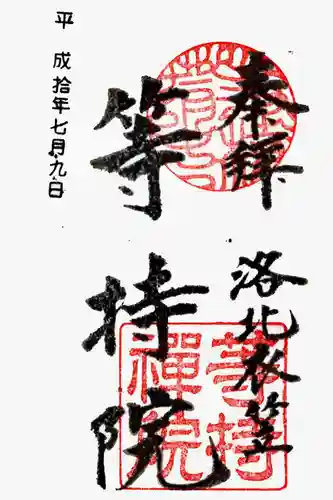 奉拝
洛北衣笠
等持院
平成拾年七月九日
等持禅院